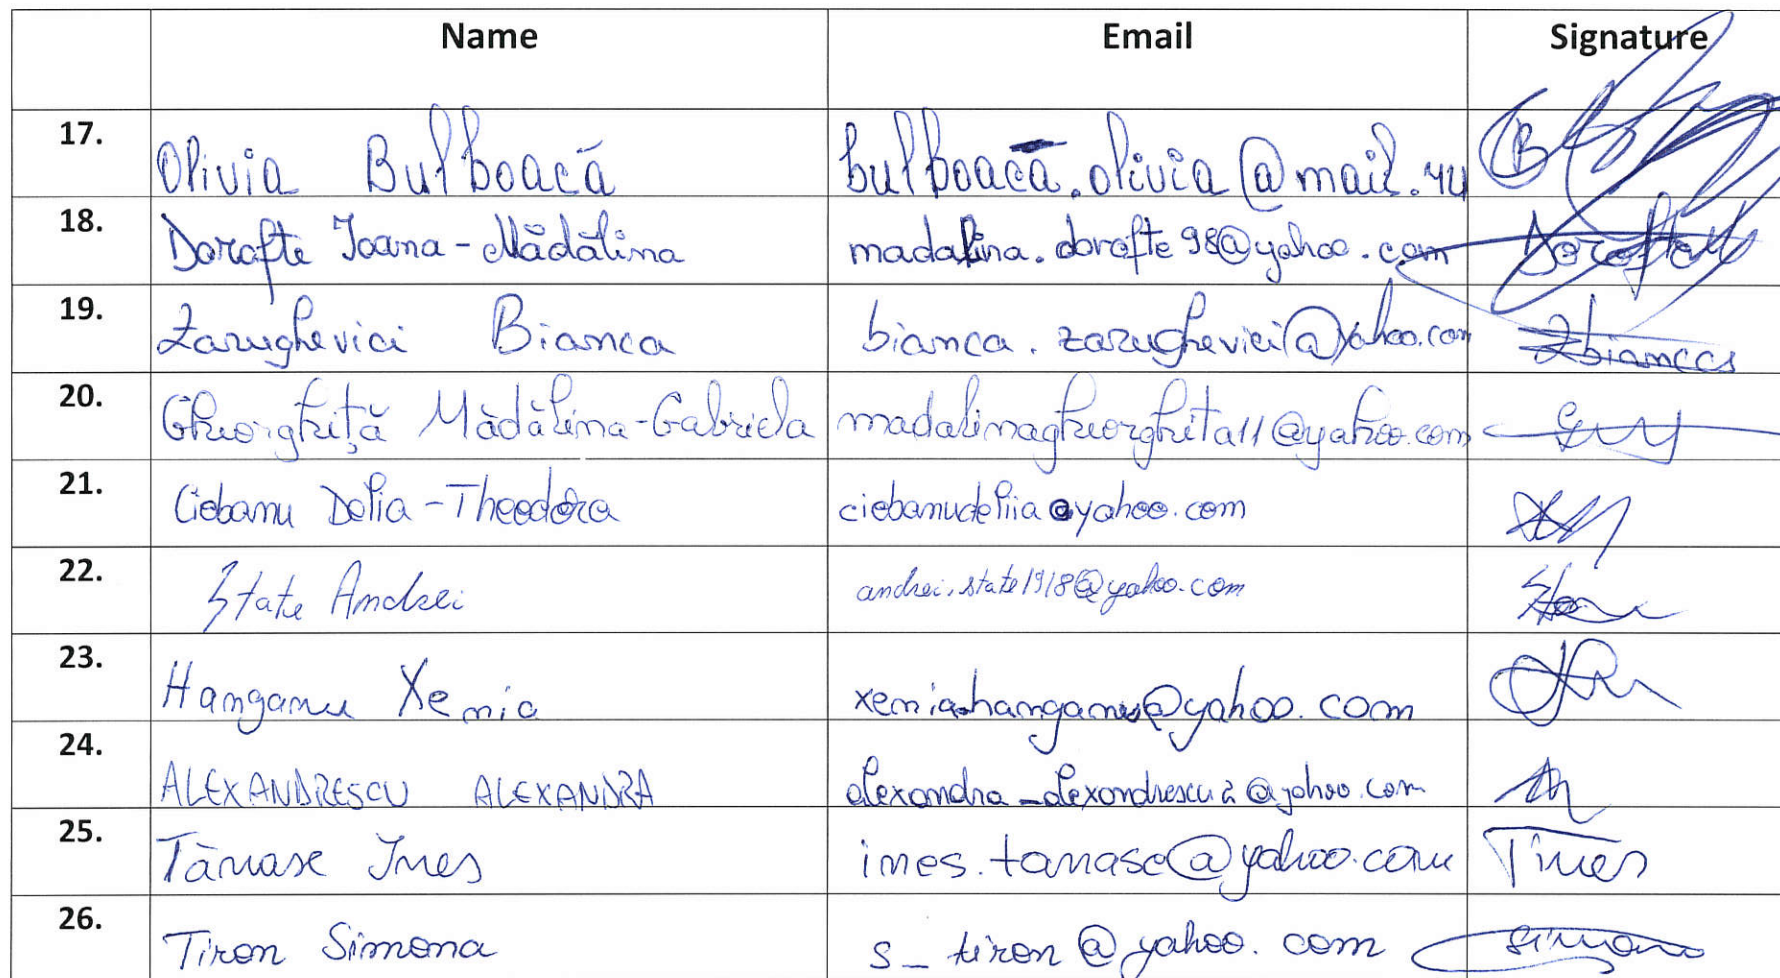 Name Email Signature
17. Olivia Bulboacă bulboaca.olivia@mail.ru B
18. Dorofte Ioana-Mădălina madalina.dorofte98@yahoo.com Dorofte
19. Zarughevici Bianca bianca.zarughevici@yahoo.com Zbianca
20. Gheorghiță Mădălina-Gabriela madalinagheorghita11@yahoo.com
21. Ciobanu Delia-Theodora ciobanudeliia@yahoo.com
22. State Andrei andrei.state1918@yahoo.com
23. Hanganu Xenia xeniahanganu@yahoo.com
24. ALEXANDRESCU ALEXANDRA alexandra_alexandrescu2@yahoo.com
25. Tănase Ines ines.tanase@yahoo.com TInes
26. Tiron Simona s_tiron@yahoo.com Simona